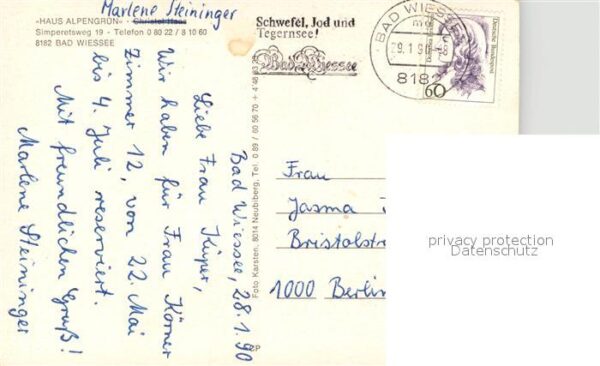 Marlene Steininger
«HAUS ALPENGRÜN» - Christel Haus
Simperetsweg 19 - Telefon 0 80 22 / 8 10 60
8182 BAD WIESSEE
Schwefel, Jod und
Tegernsee!
Bad Wiessee
BAD WIESSEE
29.1.90
8182
Deutsche Bundespost
60
Bad Wiessee, 28.1.90
Liebe Frau Küper,
Wir haben für Frau Körner
Zimmer 12, vom 22. Mai
bis 4. Juli reserviert.
Mit freundlichen Gruß!
Marlene Steininger
Foto Karsten, 8014 Neubiberg, Tel. 0 89 / 60 56 70 + 4
Frau
Jasma
Bristolstr
1000 Berlin
privacy protection
Datenschutz